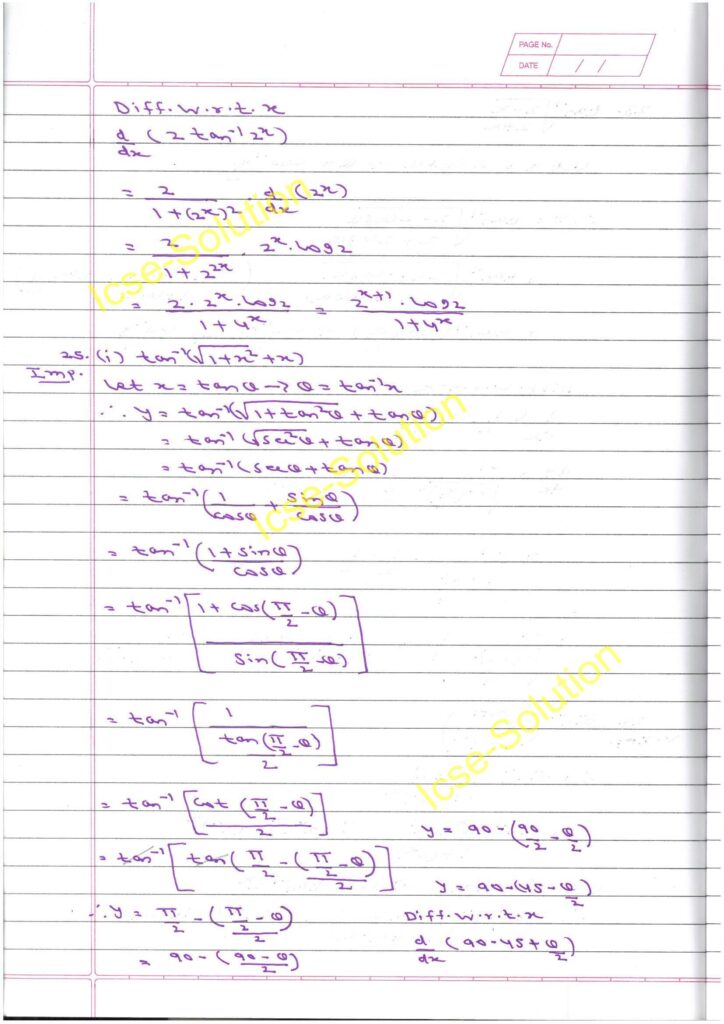 PAGE No.
DATE / /
Diff. w.r.t. x
d/dx (2 tan⁻¹ 2ˣ)
= 2/(1+(2ˣ)²) d/dx (2ˣ)
= 2/(1+2²ˣ) · 2ˣ · log2
= (2 · 2ˣ · log2)/(1+4ˣ) = (2ˣ⁺¹ · log2)/(1+4ˣ)
25. (i) tan⁻¹(√(1+x²) + x)
Imp. Let x = tanθ → θ = tan⁻¹x
∴ y = tan⁻¹(√(1+tan²θ) + tanθ)
= tan⁻¹(√(sec²θ) + tanθ)
= tan⁻¹(secθ + tanθ)
= tan⁻¹(1/cosθ + sinθ/cosθ)
= tan⁻¹((1+sinθ)/cosθ)
= tan⁻¹[(1+cos(π/2 - θ))/sin(π/2 - θ)]
= tan⁻¹[1/(tan(π/2 - θ)/2)]
= tan⁻¹[cot(π/2 - θ)/2]
= tan⁻¹[tan(π/2 - (π/2 - θ)/2]
∴ y = π/2 - (π/2 - θ)/2
= 90 - (90 - θ)/2
y = 90 - (90/2 - θ/2)
y = 90 - (45 - θ/2)
Diff. w.r.t. x
d/dx (90 - 45 + θ/2)
Icse-Solution
Icse-Solution
Icse-Solution